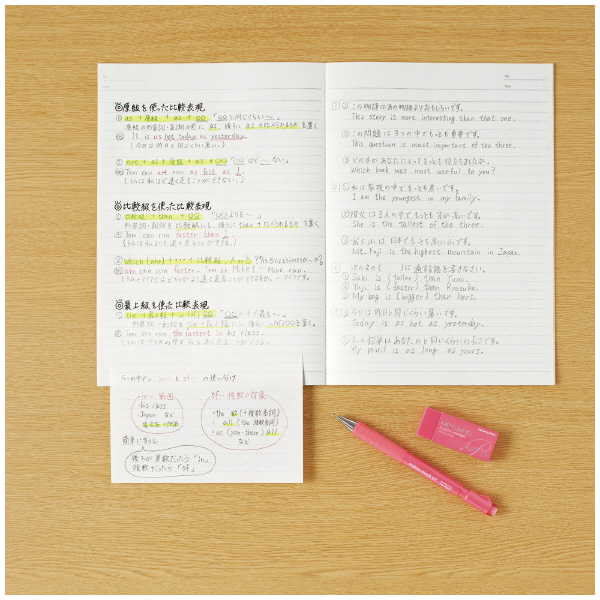 原級を使った比較表現
① as + 原級 + as + ○○ 「○○と同じくらい〜」
It is as hot today as yesterday.
(今日は昨日と同じくらい暑い。)
② not + as + 原級 + as + ○○ 「○○ほど〜ない」
Tom can not run as fast as I.
(トムは私ほど速く走ることができない。)
比較級を使った比較表現
① 比較級 + than + ○○ 「○○より〜」
Tom can run faster than I.
(トムは私よりも速く走ることができる。)
② Which (Who) 比較級, A or B
Who can run faster, Tom or Mike? - Mike can.
最上級を使った比較表現
① the + 最上級 + in (of) ○○ 「○○の中で最も〜」
Tom can run the fastest in his class.
(トムはクラスの中で最も速く走ることができる。)
「〜の中で」 in と of の使い分け
in … 範囲
his class
Japan など
of … 複数の対象
・the 数 (+複数名詞)
・all (the 複数名詞)
・us (you・them) all
など
簡単に言うと
後ろが単数だったら「in」
複数だったら「of」
1 ① この物語はあの物語よりおもしろいです。
This story is more interesting than that one.
② この問題は3つの中でもっとも重要です。
This question is most important of the three.
③ どの本があなたにとってもっとも役立ちましたか。
Which book was most useful to you?
2 ① 私は家族の中でもっとも若いです。
I am the youngest in my family.
② 彼女は3人の中でもっとも背が高いです。
She is the tallest of the three.
③ 富士山は日本でもっとも高い山です。
Mt. Fuji is the highest mountain in Japan.
3 次の文の( )に適する語を書きなさい。
① Suki is (taller) than Yumi.
② Yuji is (faster) than Kyosuke.
③ My bag is (bigger) than hers.
4 ① 今日は昨日と同じくらい暑いです。
Today is as hot as yesterday.
② 私の鉛筆はあなたのと同じくらいの長さです。
My pencil is as long as yours.